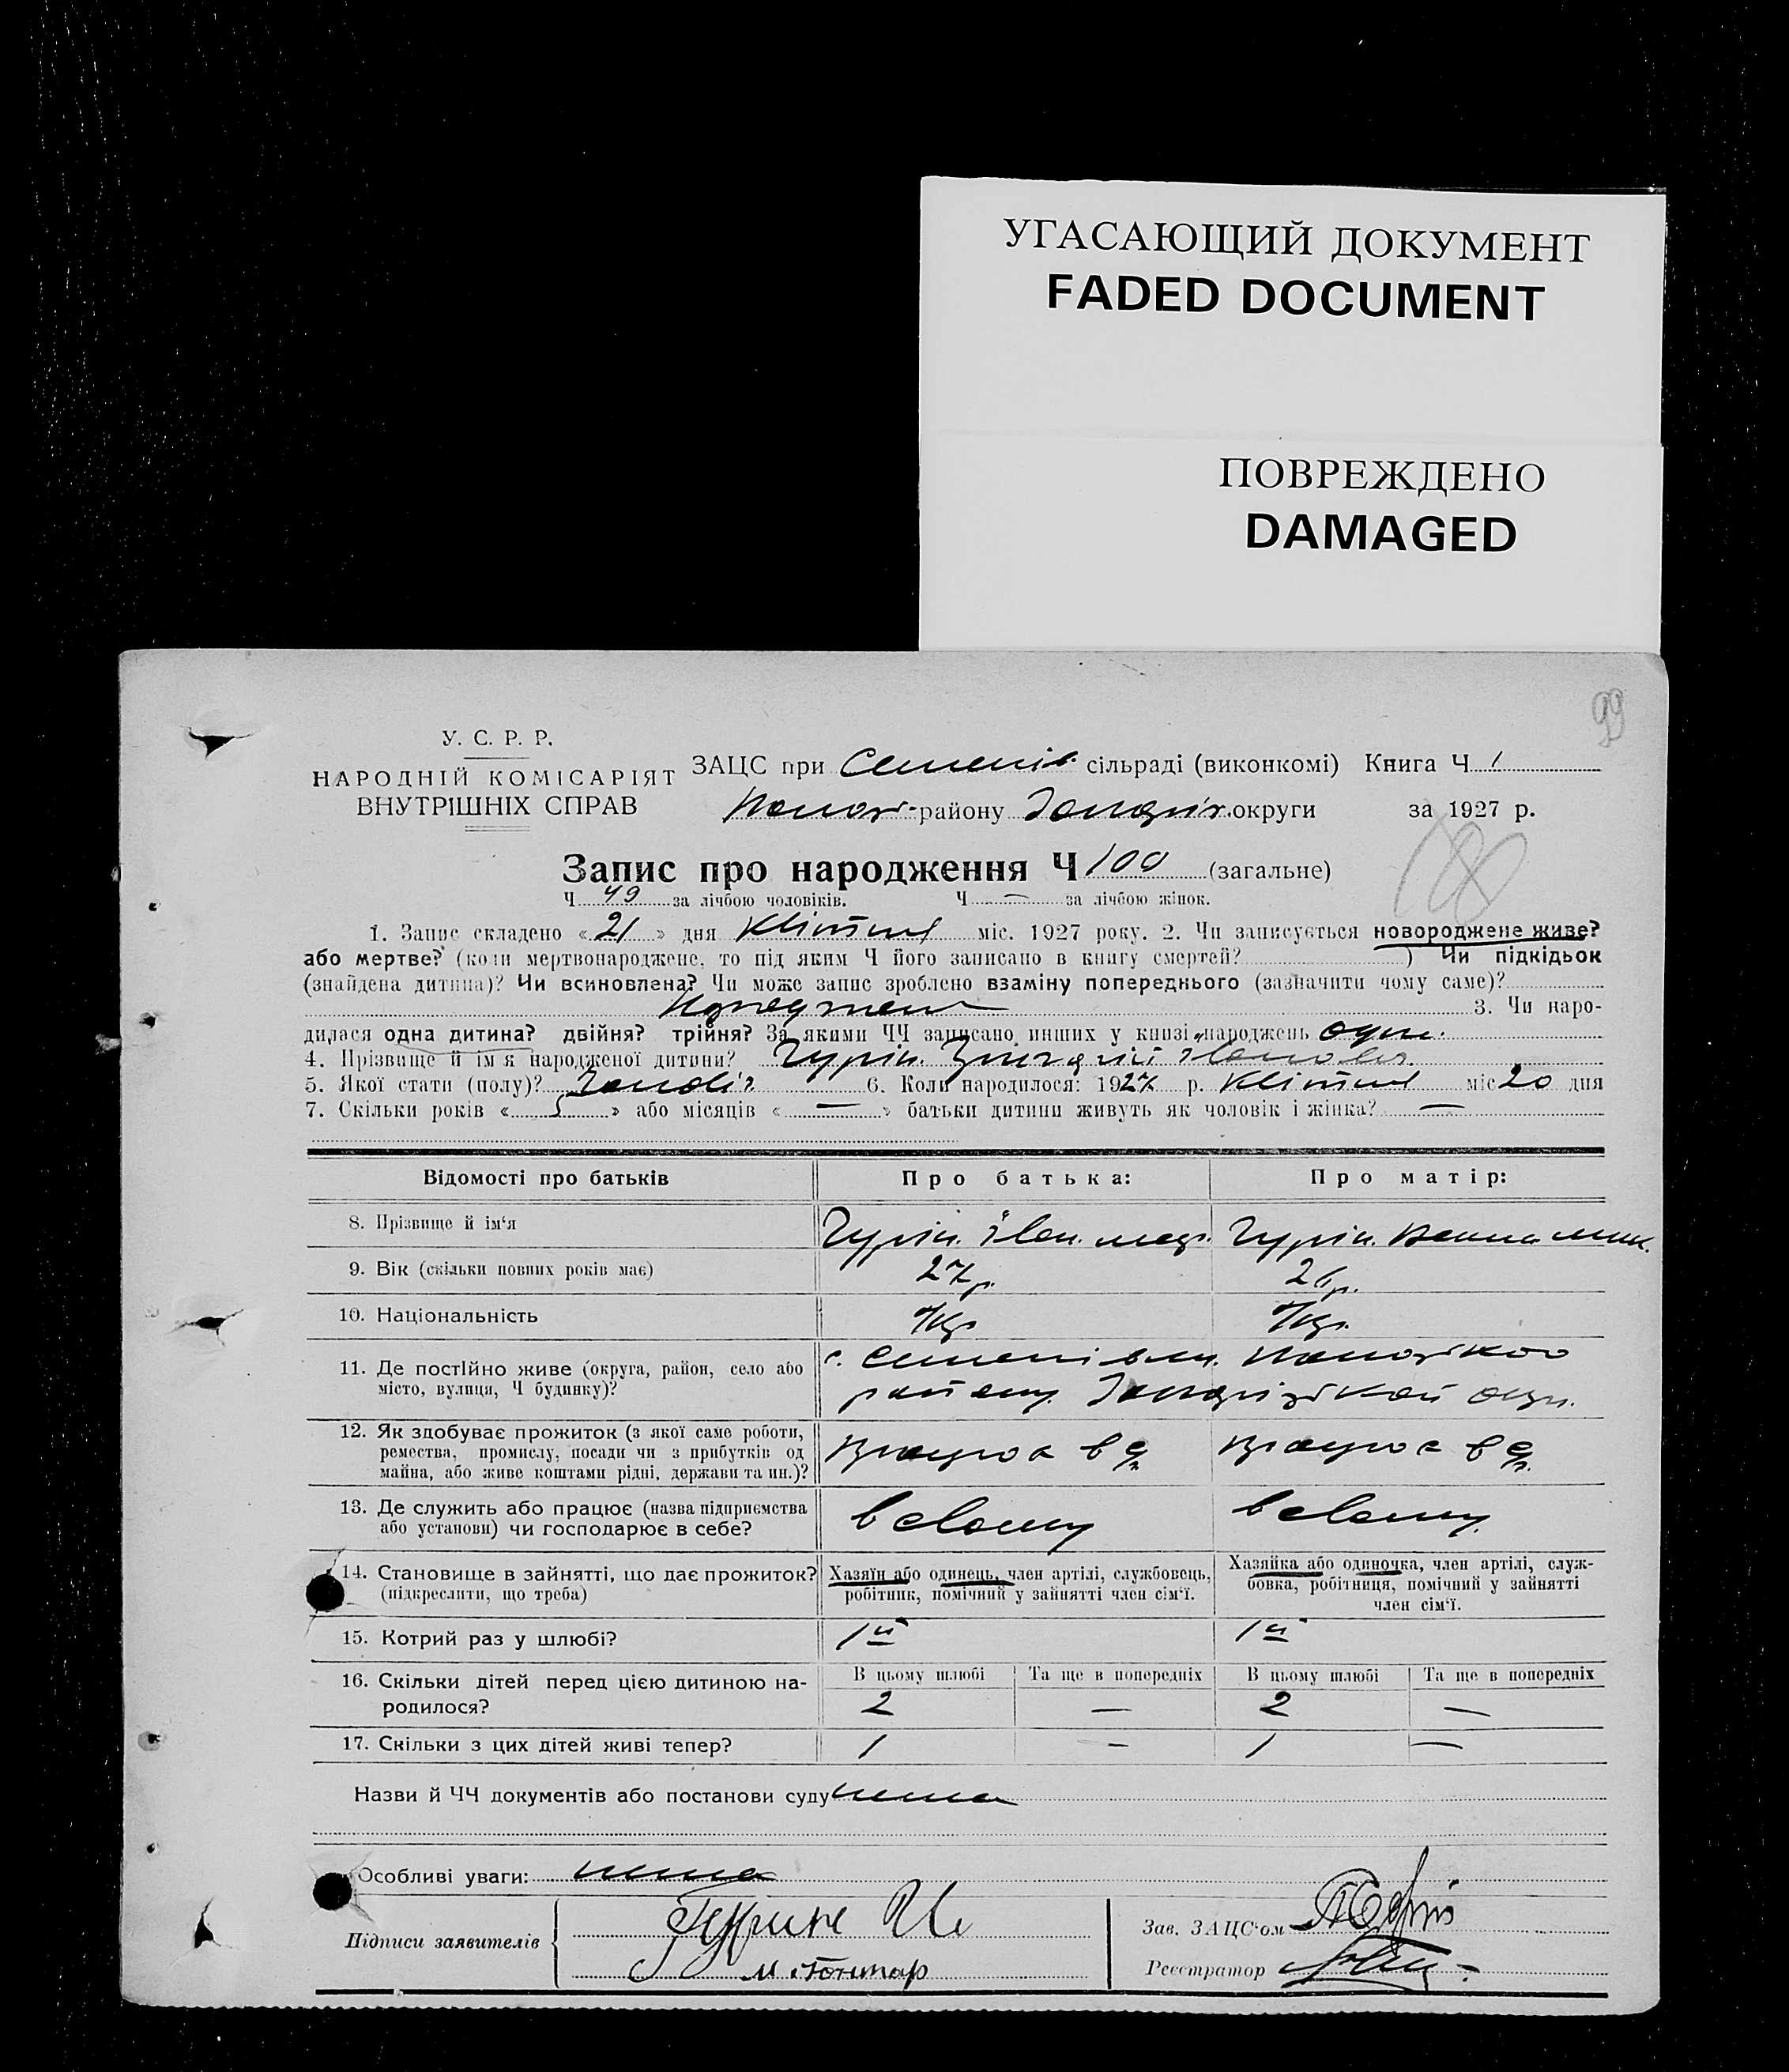 УГАСАЮЩИЙ ДОКУМЕНТ
FADED DOCUMENT
ПОВРЕЖДЕНО
DAMAGED
99
У. С. Р. Р.
НАРОДНІЙ КОМІСАРІЯТ
ВНУТРІШНІХ СПРАВ
ЗАЦС при Семенів. сільраді (виконкомі) Книга Ч 1
району округи за 1927 р.
180
Запис про народження Ч 100 (загальне)
Ч 49 за лічбою чоловіків. Ч — за лічбою жінок.
1. Запис складено « 21 » дня Квітня міс. 1927 року. 2. Чи записується новороджене живе?
або мертве? (коли мертвонароджене, то під яким Ч його записано в книгу смертей? ) Чи підкідьок
(знайдена дитина)? Чи всиновлена? Чи може запис зроблено взаміну попереднього (зазначити чому саме)?
3. Чи наро-
дилася одна дитина? двійня? трійня? За якими ЧЧ записано инших у книзі народжень один.
4. Прізвище й ім'я народженої дитини? Гурін.
5. Якої стати (полу)? 6. Коли народилося: 1927 р. Квітня міс 20 дня
7. Скільки років « 5 » або місяців « — » батьки дитини живуть як чоловік і жінка? —
Відомості про батьків Про батька: Про матір:
8. Прізвище й ім'я Гурін. Іван. Гурін. Ганна Мик.
9. Вік (скільки повних років має) 27 р. 26 р.
10. Національність Укр. Укр.
11. Де постійно живе (округа, район, село або
місто, вулиця, Ч будинку)? с. Семенівки.
району. Запорізької окр.
12. Як здобуває прожиток (з якої саме роботи,
ремества, промислу, посади чи з прибутків од
майна, або живе коштами рідні, держави та ин.)?
13. Де служить або працює (назва підприємства
або установи) чи господарює в себе? в своему в своему
14. Становище в зайнятті, що дає прожиток?
(підкреслити, що треба)
Хазяїн або одинець, член артілі, службовець,
робітник, помічний у зайнятті член сім'ї.
Хазяйка або одиночка, член артілі, служ-
бовка, робітниця, помічний у зайнятті
член сім'ї.
15. Котрий раз у шлюбі? 1й 1й
16. Скільки дітей перед цією дитиною на-
родилося?
В цьому шлюбі Та ще в попередніх В цьому шлюбі Та ще в попередніх
2 — 2 —
17. Скільки з цих дітей живі тепер? 1 — 1 —
Назви й ЧЧ документів або постанови суду нема
Особливі уваги: нема
Підписи заявителів
М. Гонтар
Зав. ЗАЦС'ом
Реєстратор